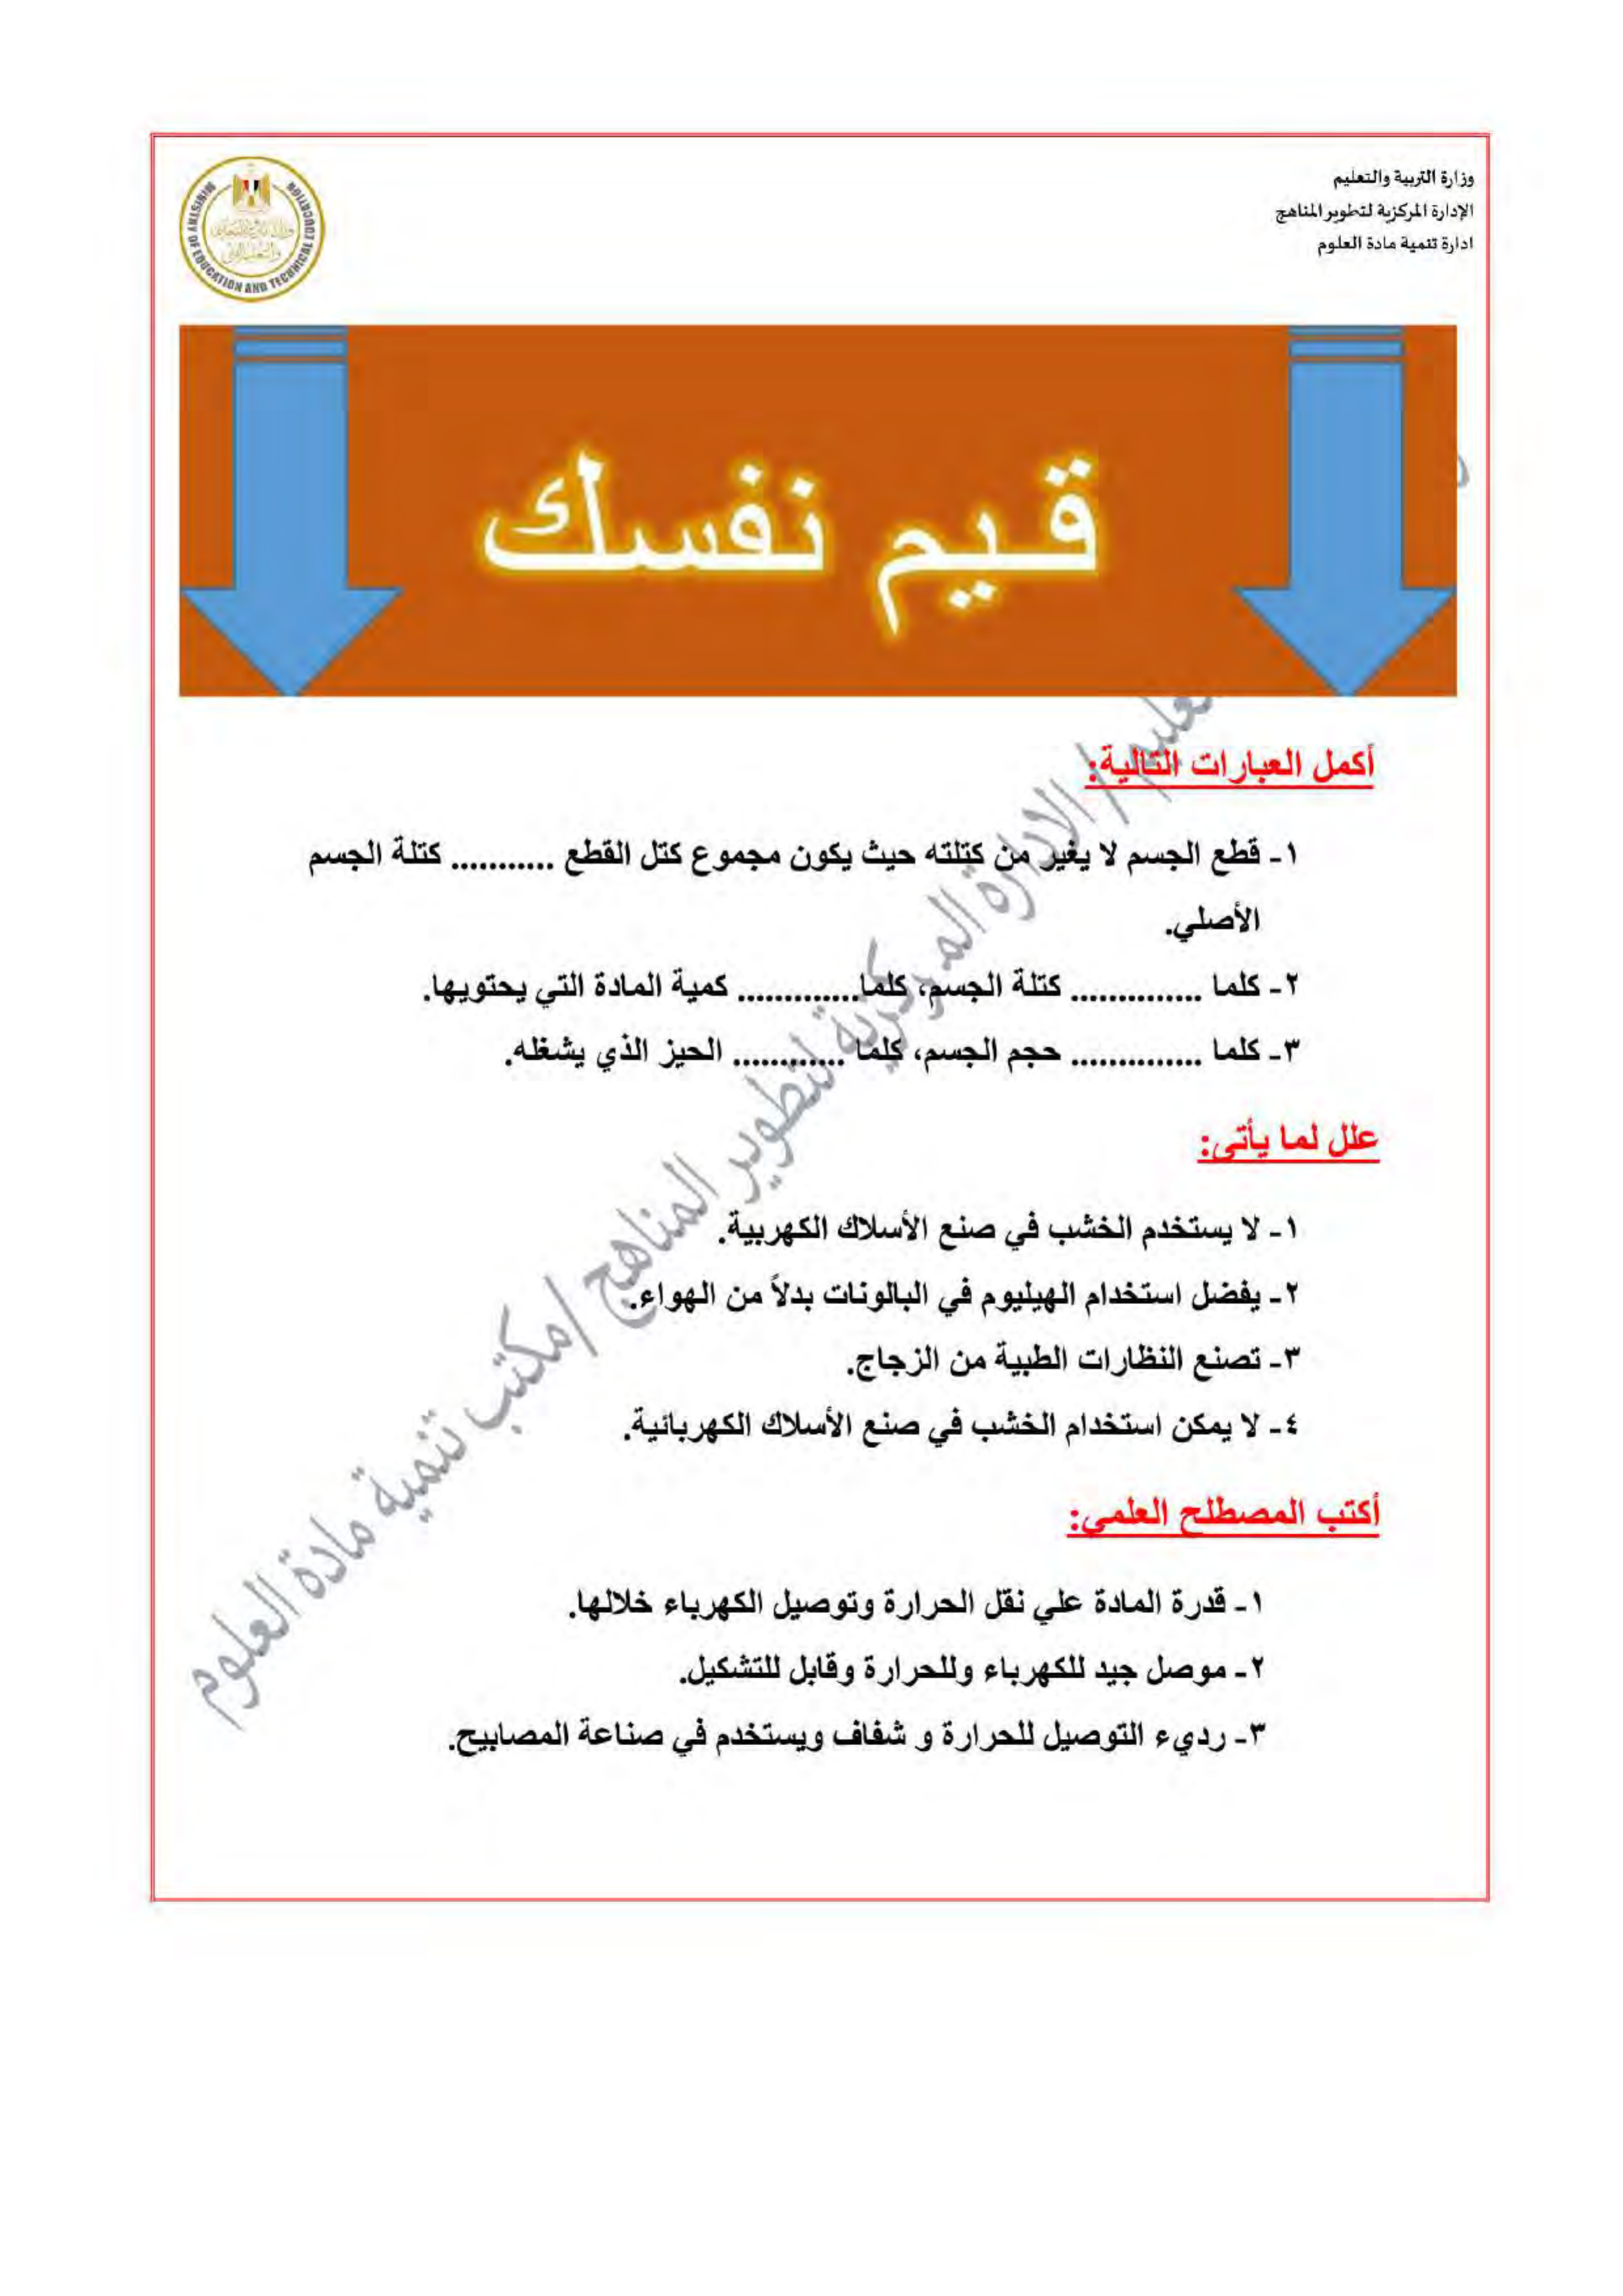 وزارة التربية والتعليم
الإدارة المركزية لتطوير المناهج
ادارة تنمية مادة العلوم
MINISTRY OF EDUCATION AND TECHNICAL EDUCATION
قيم نفسك
أكمل العبارات التالية:
١- قطع الجسم لا يغير من كتلته حيث يكون مجموع كتل القطع ........... كتلة الجسم
الأصلي.
٢- كلما .............. كتلة الجسم، كلما............. كمية المادة التي يحتويها.
٣- كلما .............. حجم الجسم، كلما ............ الحيز الذي يشغله.
علل لما يأتى:
١- لا يستخدم الخشب في صنع الأسلاك الكهربية.
٢- يفضل استخدام الهيليوم في البالونات بدلاً من الهواء.
٣- تصنع النظارات الطبية من الزجاج.
٤- لا يمكن استخدام الخشب في صنع الأسلاك الكهربائية.
أكتب المصطلح العلمي:
١- قدرة المادة علي نقل الحرارة وتوصيل الكهرباء خلالها.
٢- موصل جيد للكهرباء وللحرارة وقابل للتشكيل.
٣- رديء التوصيل للحرارة و شفاف ويستخدم في صناعة المصابيح.
/ الادارة المركزية لتطوير المناهج /مكتب تنمية مادة العلوم